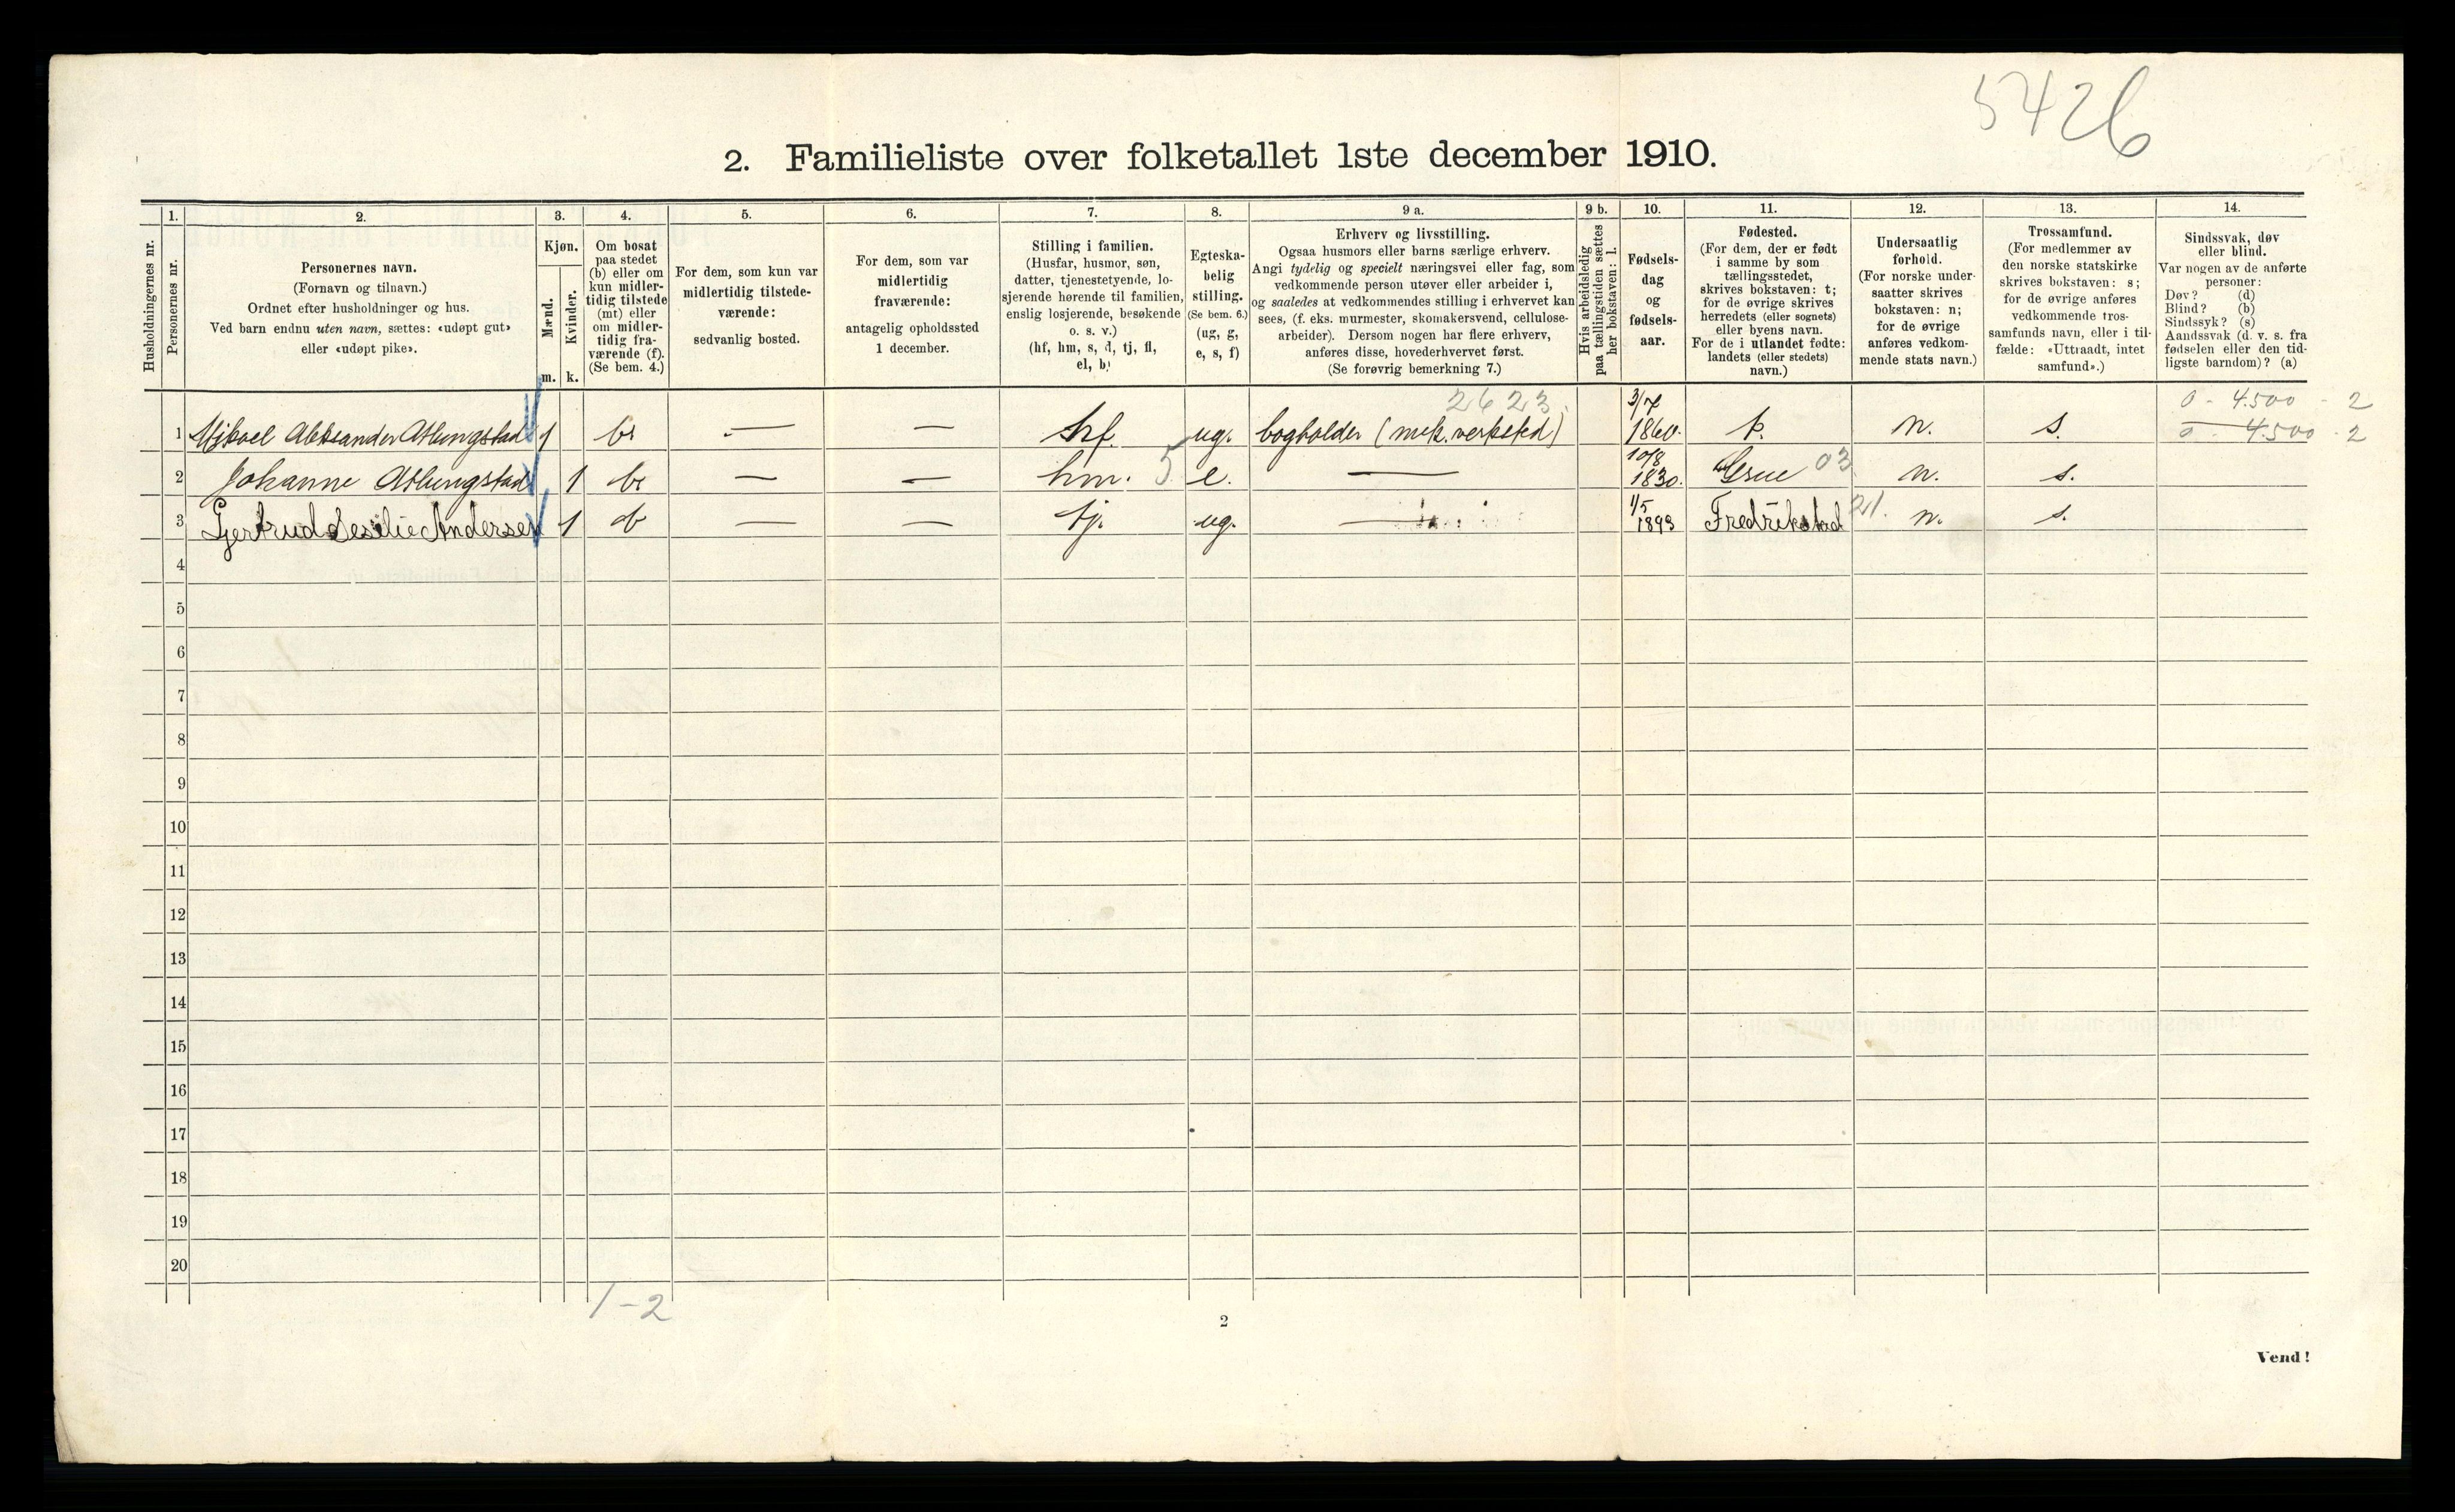 5426
2. Familieliste over folketallet 1ste december 1910.
Husholdningernes nr.
1.
Personernes nr.
2.
Personernes navn.
(Fornavn og tilnavn.)
Ordnet efter husholdninger og hus.
Ved barn endnu uten navn, sættes: «udøpt gut»
eller «udøpt pike».
3.
Kjøn.
Mænd.
Kvinder.
m. k.
4.
Om bosat
paa stedet
(b) eller om
kun midler-
tidig tilstede
(mt) eller
om midler-
tidig fra-
værende (f).
(Se bem. 4.)
5.
For dem, som kun var
midlertidig tilstede-
værende:
sedvanlig bosted.
6.
For dem, som var
midlertidig
fraværende:
antagelig opholdssted
1 december.
7.
Stilling i familien.
(Husfar, husmor, søn,
datter, tjenestetyende, lo-
sjerende hørende til familien,
enslig losjerende, besøkende
o. s. v.)
(hf, hm, s, d, tj, fl,
el, b)
8.
Egteska-
belig
stilling.
(Se bem. 6.)
(ug, g,
e, s, f)
9 a.
Erhverv og livsstilling.
Ogsaa husmors eller barns særlige erhverv.
Angi tydelig og specielt næringsvei eller fag, som
vedkommende person utøver eller arbeider i,
og saaledes at vedkommendes stilling i erhvervet kan
sees, (f. eks. murmester, skomakersvend, cellulose-
arbeider). Dersom nogen har flere erhverv,
anføres disse, hovederhvervet først.
(Se forøvrig bemerkning 7.)
9 b.
Hvis arbeidsledig
paa tællingstiden sættes
her bokstaven: l.
10.
Fødsels-
dag
og
fødsels-
aar.
11.
Fødested.
(For dem, der er født
i samme by som
tællingsstedet,
skrives bokstaven: t;
for de øvrige skrives
herredets (eller sognets)
eller byens navn.
For de i utlandet fødte:
landets (eller stedets)
navn.)
12.
Undersaatlig
forhold.
(For norske under-
saatter skrives
bokstaven: n;
for de øvrige
anføres vedkom-
mende stats navn.)
13.
Trossamfund.
(For medlemmer av
den norske statskirke
skrives bokstaven: s;
for de øvrige anføres
vedkommende tros-
samfunds navn, eller i til-
fælde: «Uttraadt, intet
samfund».)
14.
Sindssvak, døv
eller blind.
Var nogen av de anførte
personer:
Døv? (d)
Blind? (b)
Sindssyk? (s)
Aandssvak (d. v. s. fra
fødselen eller den tid-
ligste barndom)? (a)
2623. 3/7 0 - 4.500 - 2
1 Mikael Aleksander Atlungstad 1 b — — hf. ug. bogholder (mek. verksted) 1860. t. n. s. 0 - 4.500 - 2
10/8
2 Johanne Atlungstad 1 b — — hm. 5 e. — 1830. Grue 03 n. s.
1/5
3 Gjertrud Sesilie Andersen 1 b — — tj. ug. — 1893 Fredrikstad 21. n. s.
4
5
6
7
8
9
10
11
12
13
14
15
16
17
18
19
20
1-2
2
Vend!